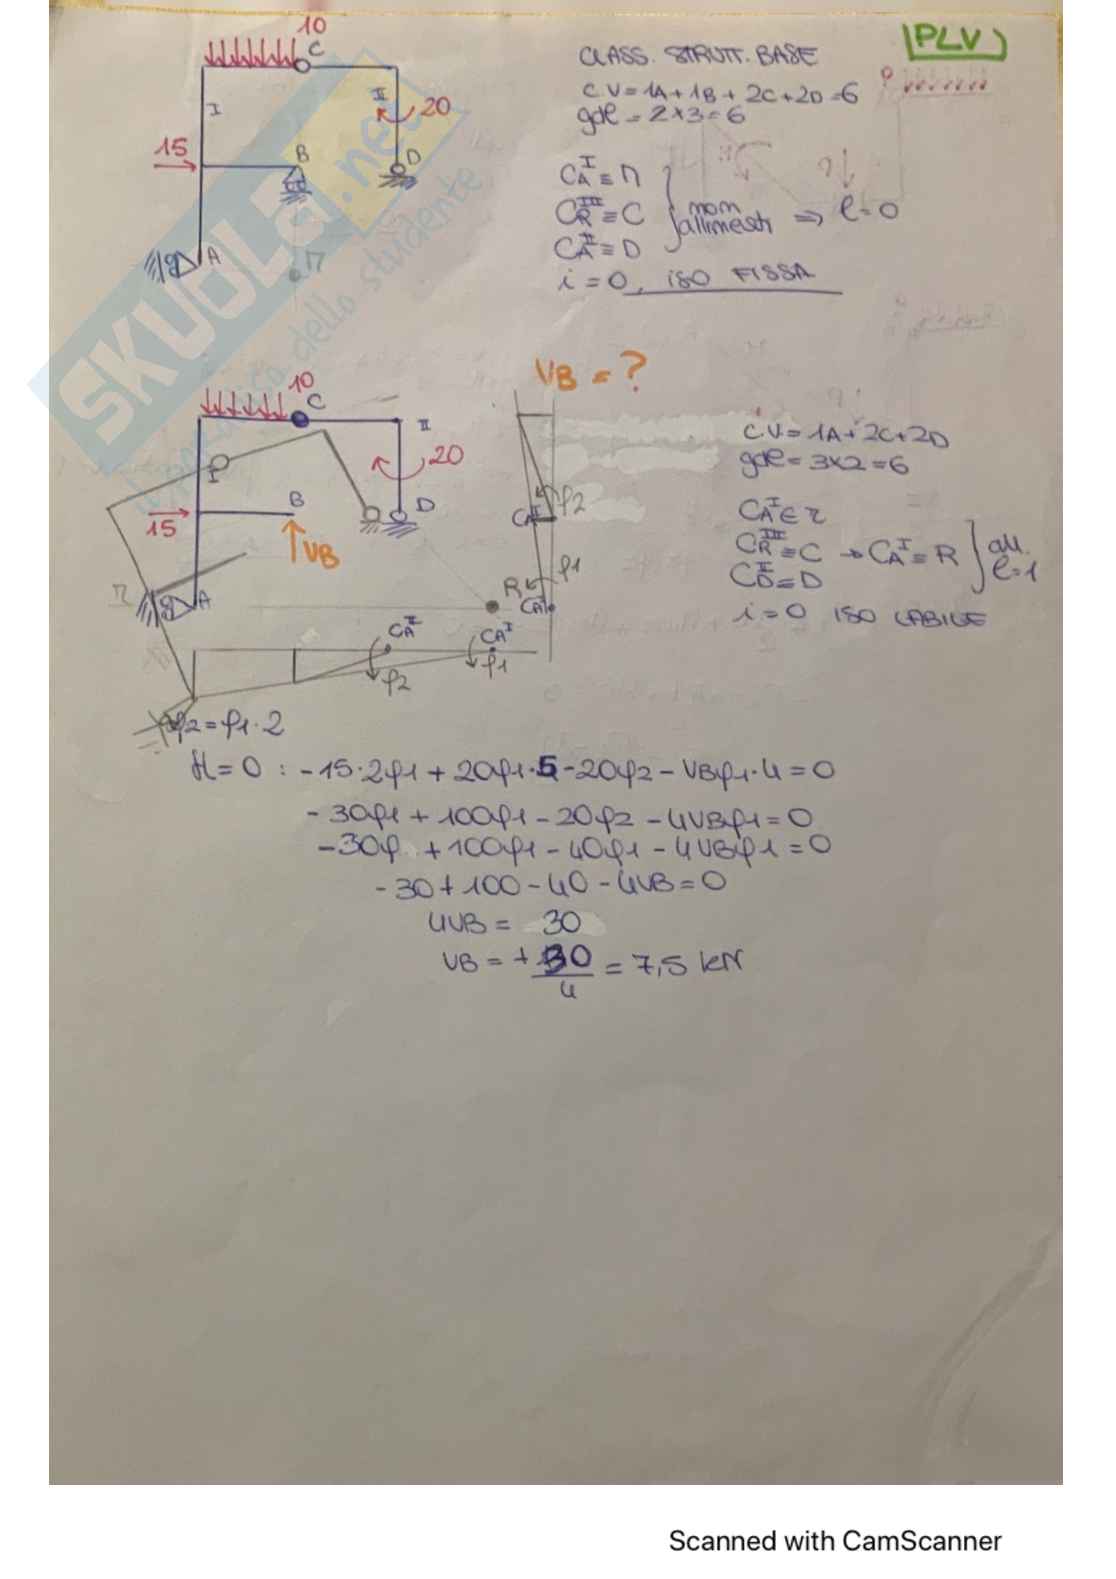 PLV
10
C
I
II
20
15
B
D
A
Π
CLASS. STRUTT. BASE
C.V=1A+1B+2C+2D=6
gdl = 2x3=6
CA^I ≡ Π
CR^III ≡ C
CA^II ≡ D
non allineati => l=0
i=0, ISO FISSA
SKUOLA.net
dello studente
VB = ?
10
C
II
20
P
15
B
D
VB
A
r
R
CA^II
φ2
φ1
CA^I
CA^II
CA^I
φ2
φ1
C.V=1A+2C+2D
gdl=3x2=6
CA^I ∈ r
CR^III ≡ C → CA^I ≡ R
CD^II ≡ D
all. l=1
i=0 ISO LABILE
φ2=φ1·2
H=0 : -15·2φ1 + 20φ1·5-20φ2-VBφ1·4=0
-30φ1+100φ1-20φ2-4VBφ1=0
-30φ +100φ1-40φ1-4VBφ1=0
-30+100-40-4VB=0
4VB= 30
VB=+30/4=7,5 kN
Scanned with CamScanner